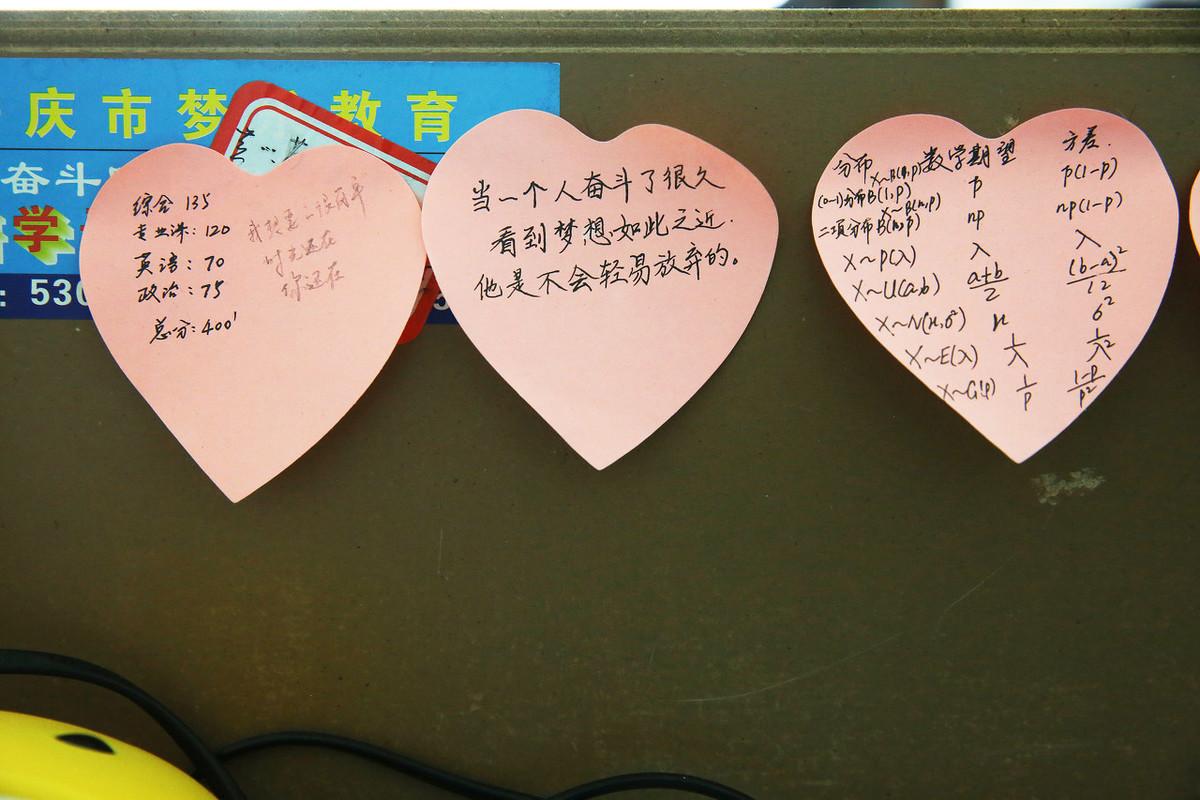 庆市梦
教育
奋斗
学
: 530
综合 135
专业课: 120
英语: 70
政治: 75
总分: 400'
我想要的很简单
时光还在
你还在
当一个人奋斗了很久
看到梦想如此之近.
他是不会轻易放弃的。
分布 数学期望 方差.
(0-1)分布B(1,p) p p(1-p)
X~B(n,p)
二项分布B(n,p) np np(1-p)
X~P(λ) λ λ
X~U(a,b) a+b/2 (b-a)²/12
X~N(μ,σ²) μ σ²
X~E(λ) 1/λ 1/λ²
X~G(p) 1/p 1-p/p²